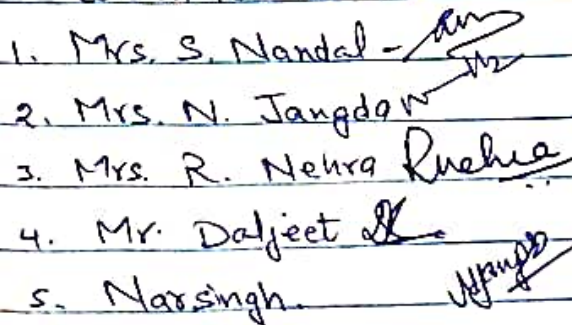 1. Mrs. S. Nandal -
2. Mrs. N. Jangda
3. Mrs. R. Nehra Rnehra
4. Mr. Daljeet
5. Narsingh.